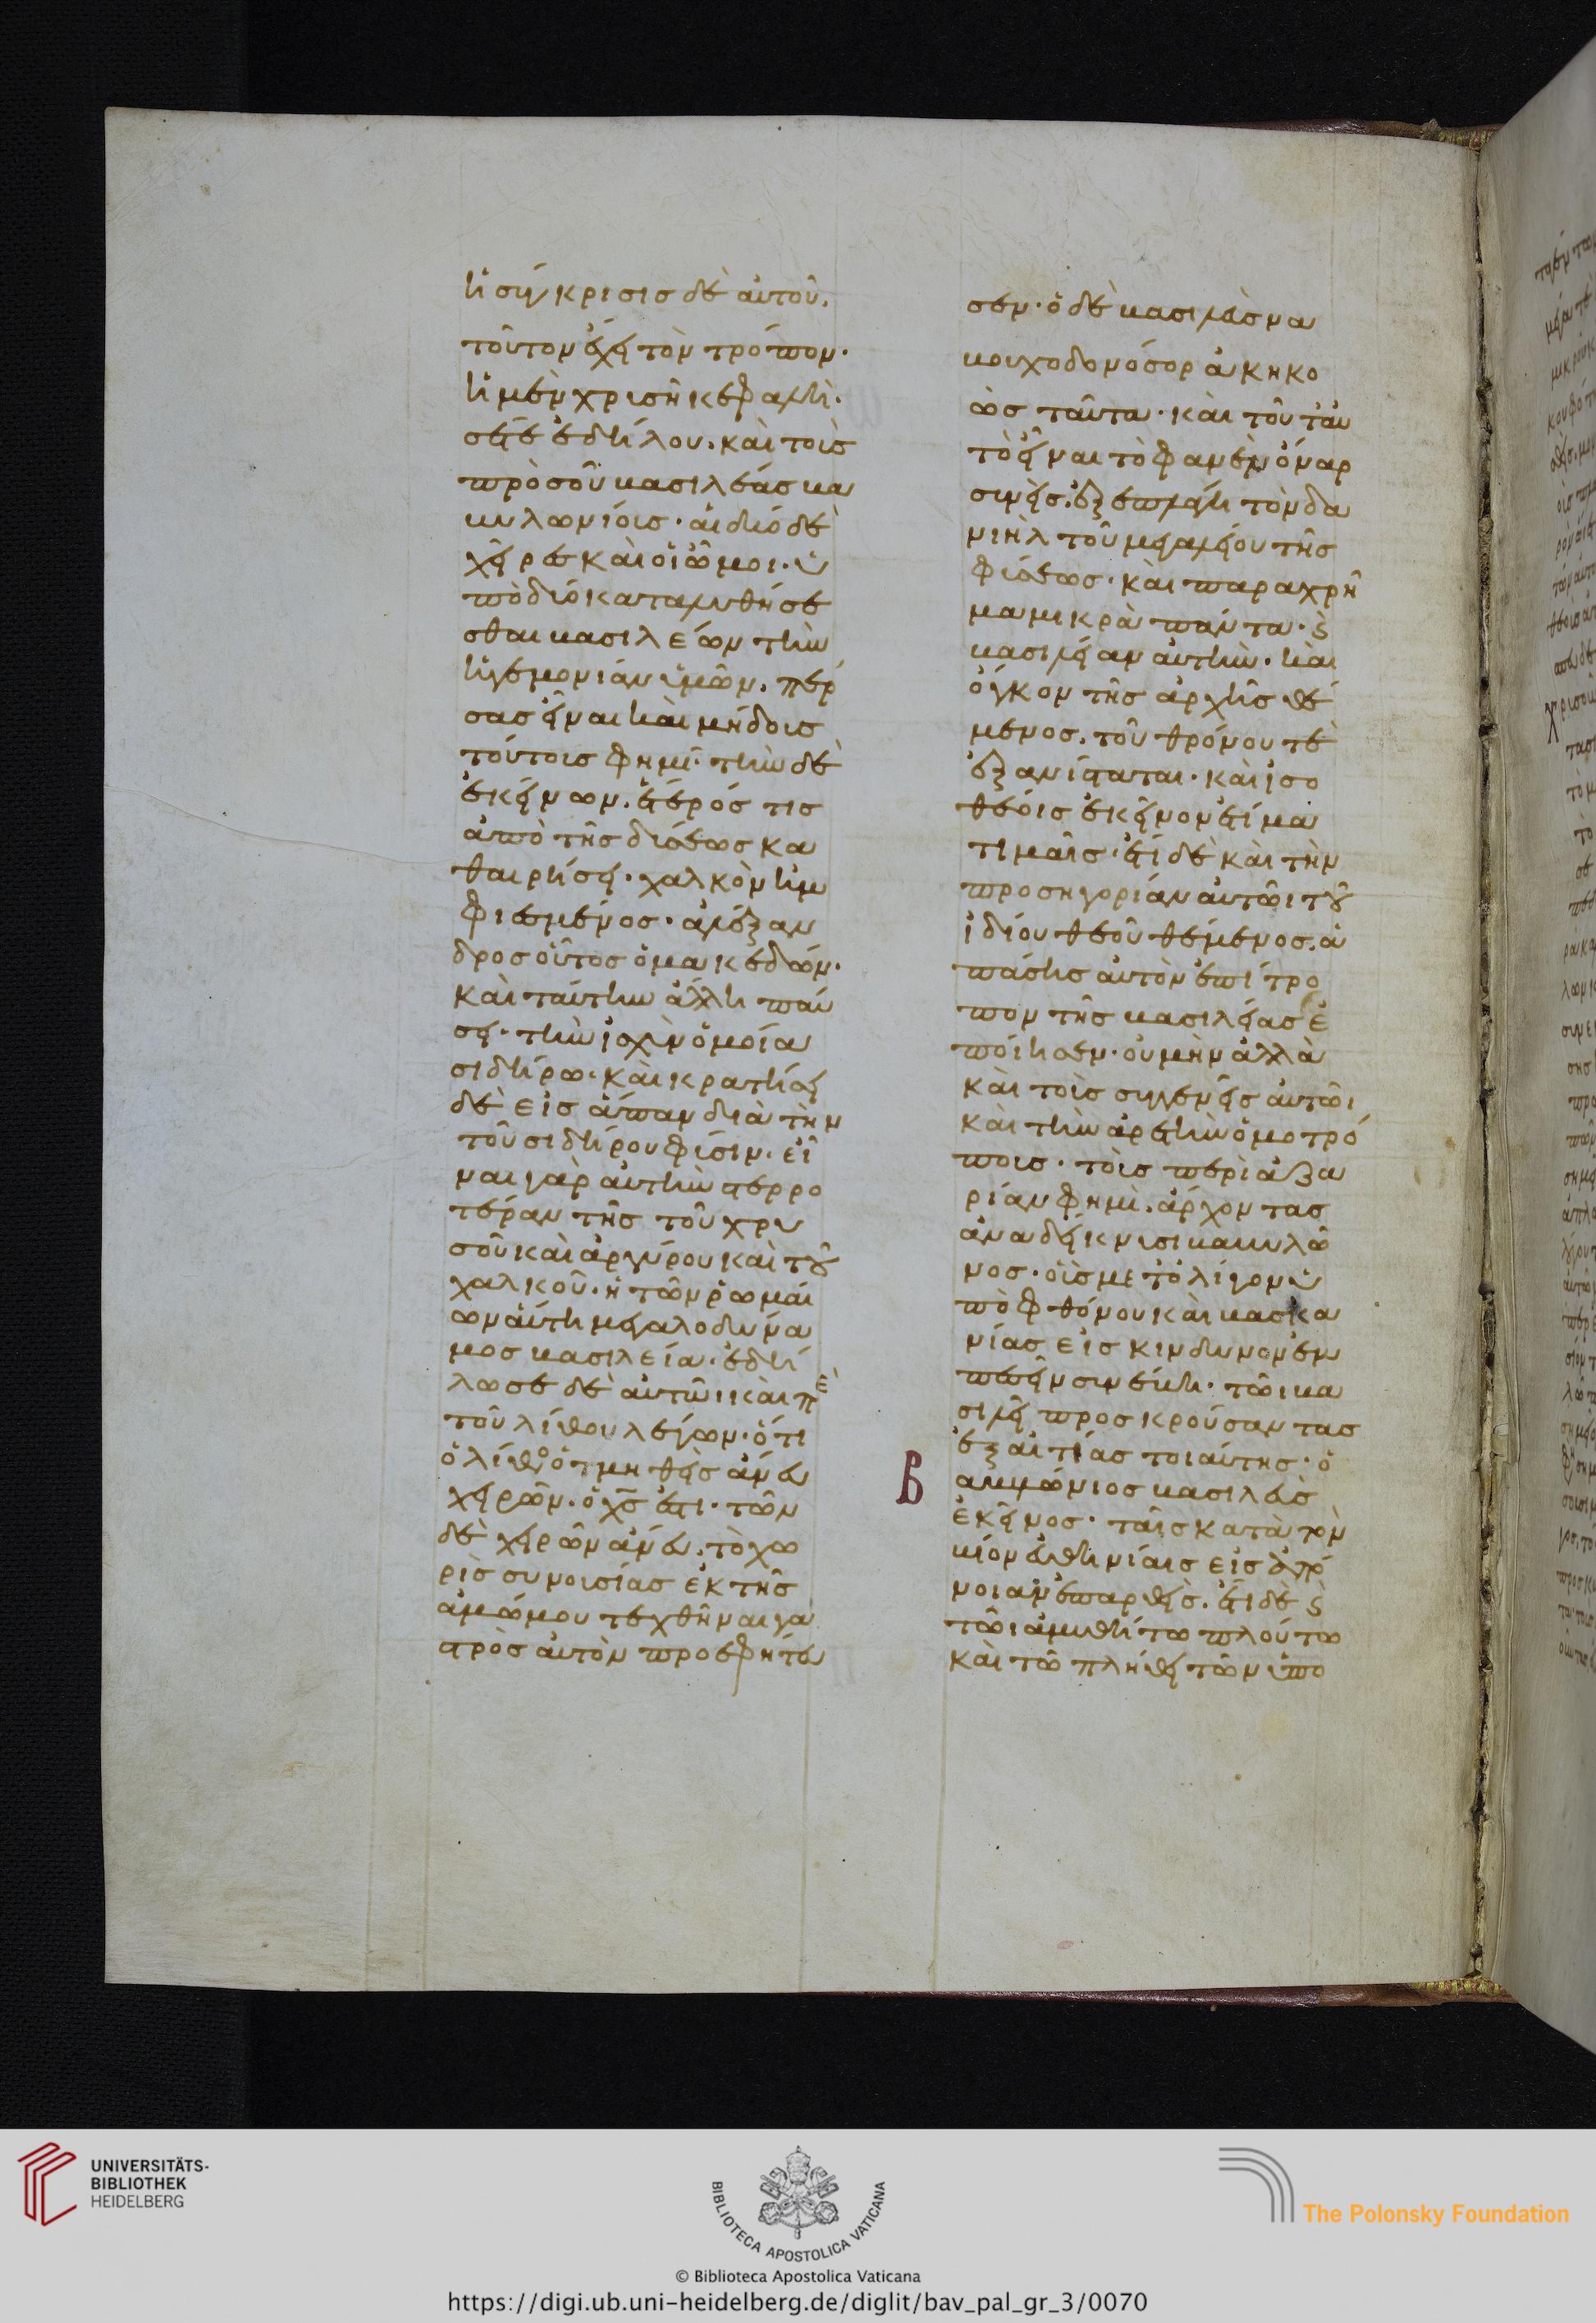 ἡ σύγκρισις δὲ αὐτοῦ.
τοῦτον ἔχει τὸν τρόπον·
ἡ μὲν χρυσῆ κεφαλὴ·
σέ τε ἐδήλου. καὶ τοὺς
πρὸ σοῦ βασιλέας βα
βυλωνίοις· αἱ δύο δὲ
χεῖρες καὶ οἱ ὦμοι· ὑ
πὸ δύο καταλυθήσε
σθαι βασιλέων τὴν
ἡγεμονίαν ὑμῶν. πέρ
σας εἶναι καὶ μήδους
τούτους φημί· τὴν δὲ
ἐκείνων. ἕτερός τις
ἀπὸ τῆς δύσεως κα
θαιρήσει· χαλκὸν ἠμ
φιεσμένος· ἀλέξαν
δρος οὗτος ὁ μακεδών·
καὶ ταύτην ἄλλη παύ
σει· τὴν ἰσχὺν ὁμοία
σιδήρω· καὶ κρατήσει
δὲ εἰς ἅπαν διὰ τὴν
τοῦ σιδήρου φύσιν· εἶ
ναι γὰρ αὐτὴν στερρο
τέραν τῆς τοῦ χρυ
σοῦ καὶ ἀργύρου καὶ τοῦ
χαλκοῦ· ἡ τῶν ῥωμαί
ων αὕτη μεγαλοδύνα
μος βασιλεία· ἐδή
λωσε δὲ αὐτῶι καὶ πὲ
τοῦ λίθου λέγων· ὅτι
ὁ λίθος ὁ τμηθεὶς ἄνευ
χειρῶν· ὁ χς ἐστι· τῶν
δὲ χειρῶν ἄνευ. τὸ χω
ρὶς συνουσίας ἐκ τῆς
ἀμώμου τεχθῆναι γα
στρὸς αὐτὸν προεφήτευ
σεν· ὁ δὲ βασιλεὺς να
βουχοδονόσορ ἀκηκο
ὼς ταῦτα· καὶ τοῦτ' αὐ
τὸ εἶναι τὸ φανὲν ὄναρ
συνεὶς. ἐξεπλάγη τὸν δα
νιὴλ τοῦ μεγαλείου τῆς
φύσεως· καὶ παραχρῆ
μα μικρὰ πάντα· ϛ
βασιλείαν αὐτὴν· καὶ
ὄγκον τῆς ἀρχῆς θέ
μενος. τοῦ θρόνου τὲ
ἐξανίσταται· καὶ ἰσο
θέοις ἐκεῖνον ἐτίμα
τιμαῖς· ἔτι δὲ καὶ τὴν
προσηγορίαν αὐτῶι τοῦ
ἰδίου θεοῦ θέμενος. ἁ
πάσης αὐτὸν ἐπίτρο
πον τῆς βασιλείας ἐ
ποίησεν· οὐ μὴν ἀλλὰ
καὶ τοὺς συγγενεῖς αὐτῶι
καὶ τὴν ἀρετὴν ὁμοτρό
πους· τοὺς περὶ ἀζα
ρίαν φημὶ. ἄρχοντας
ἀναδείκνυσι βαβυλῶ
νος· οὓς μετ' ὀλίγον ὑ
πὸ φθόνου καὶ βασκα
νίας εἰς κίνδυνον ἐμ
πεσεῖν συνέβη· τῶι βα
σιλεῖ προσκρούσαντας
ἐξ αἰτίας τοιαύτης· ὁ
Β
βαβυλώνιος βασιλεὺς
ἐκεῖνος· ταῖς κατὰ τὸν
βίον εὐθηνίαις εἰς ἀπό
νοιαν ἐπαρθεὶς. ἔτι δὲ ϛ
τῶι ἀμυθήτω πλούτω
καὶ τῶ πλήθει τῶν ὑπο
UNIVERSITÄTS-
BIBLIOTHEK
HEIDELBERG
BIBLIOTECA APOSTOLICA VATICANA
The Polonsky Foundation
© Biblioteca Apostolica Vaticana
https://digi.ub.uni-heidelberg.de/diglit/bav_pal_gr_3/0070